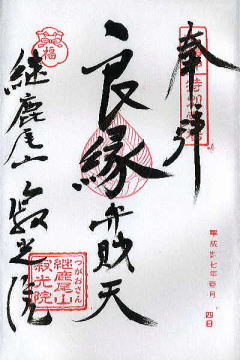 奉拝
良縁弁財天
継鹿尾山
寂光院
福
つがおさん
継鹿尾山
寂光院
平成
年
月
四日